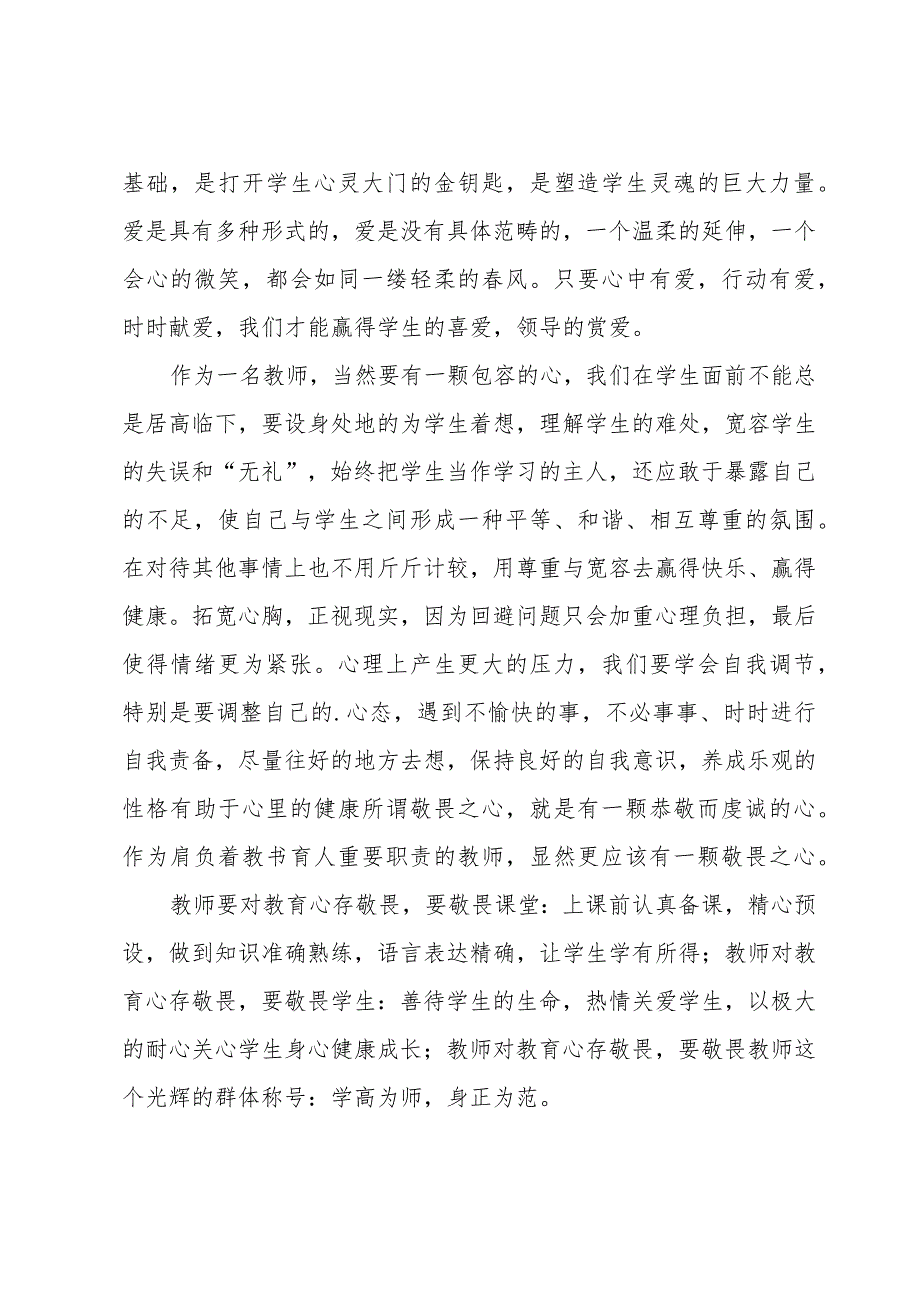 基础，是打开学生心灵大门的金钥匙，是塑造学生灵魂的巨大力量。
爱是具有多种形式的，爱是没有具体范畴的，一个温柔的延伸，一个
会心的微笑，都会如同一缕轻柔的春风。只要心中有爱，行动有爱，
时时献爱，我们才能赢得学生的喜爱，领导的赏爱。
作为一名教师，当然要有一颗包容的心，我们在学生面前不能总
是居高临下，要设身处地的为学生着想，理解学生的难处，宽容学生
的失误和“无礼”，始终把学生当作学习的主人，还应敢于暴露自己
的不足，使自己与学生之间形成一种平等、和谐、相互尊重的氛围。
在对待其他事情上也不用斤斤计较，用尊重与宽容去赢得快乐、赢得
健康。拓宽心胸，正视现实，因为回避问题只会加重心理负担，最后
使得情绪更为紧张。心理上产生更大的压力，我们要学会自我调节，
特别是要调整自己的.心态，遇到不愉快的事，不必事事、时时进行
自我责备，尽量往好的地方去想，保持良好的自我意识，养成乐观的
性格有助于心里的健康所谓敬畏之心，就是有一颗恭敬而虔诚的心。
作为肩负着教书育人重要职责的教师，显然更应该有一颗敬畏之心。
教师要对教育心存敬畏，要敬畏课堂：上课前认真备课，精心预
设，做到知识准确熟练，语言表达精确，让学生学有所得；教师对教
育心存敬畏，要敬畏学生：善待学生的生命，热情关爱学生，以极大
的耐心关心学生身心健康成长；教师对教育心存敬畏，要敬畏教师这
个光辉的群体称号：学高为师，身正为范。